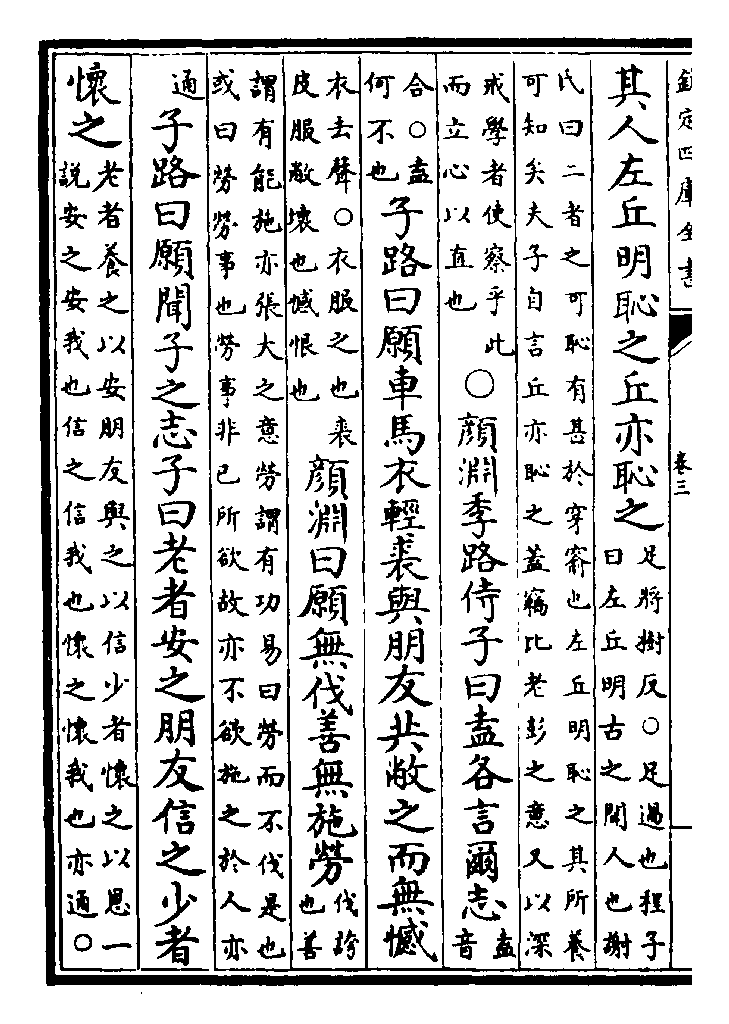 欽定四庫全書
卷三
其人左丘明恥之丘亦恥之
足將樹反○足過也程子
曰左丘明古之聞人也謝
氏曰二者之可恥有甚於穿窬也左丘明恥之其所養
可知矣夫子自言丘亦恥之蓋竊比老彭之意又以深
戒學者使察乎此
而立心以直也
○顔淵季路侍子曰盍各言爾志
盍
音
合○盍
何不也
子路曰願車馬衣輕裘與朋友共敝之而無憾
衣去聲○衣服之也裘
皮服敝壞也憾恨也
顔淵曰願無伐善無施勞
伐誇
也善
謂有能施亦張大之意勞謂有功易曰勞而不伐是也
或曰勞勞事也勞事非己所欲故亦不欲施之於人亦
通
子路曰願聞子之志子曰老者安之朋友信之少者
懷之
老者養之以安朋友與之以信少者懷之以恩一
說安之安我也信之信我也懷之懷我也亦通○